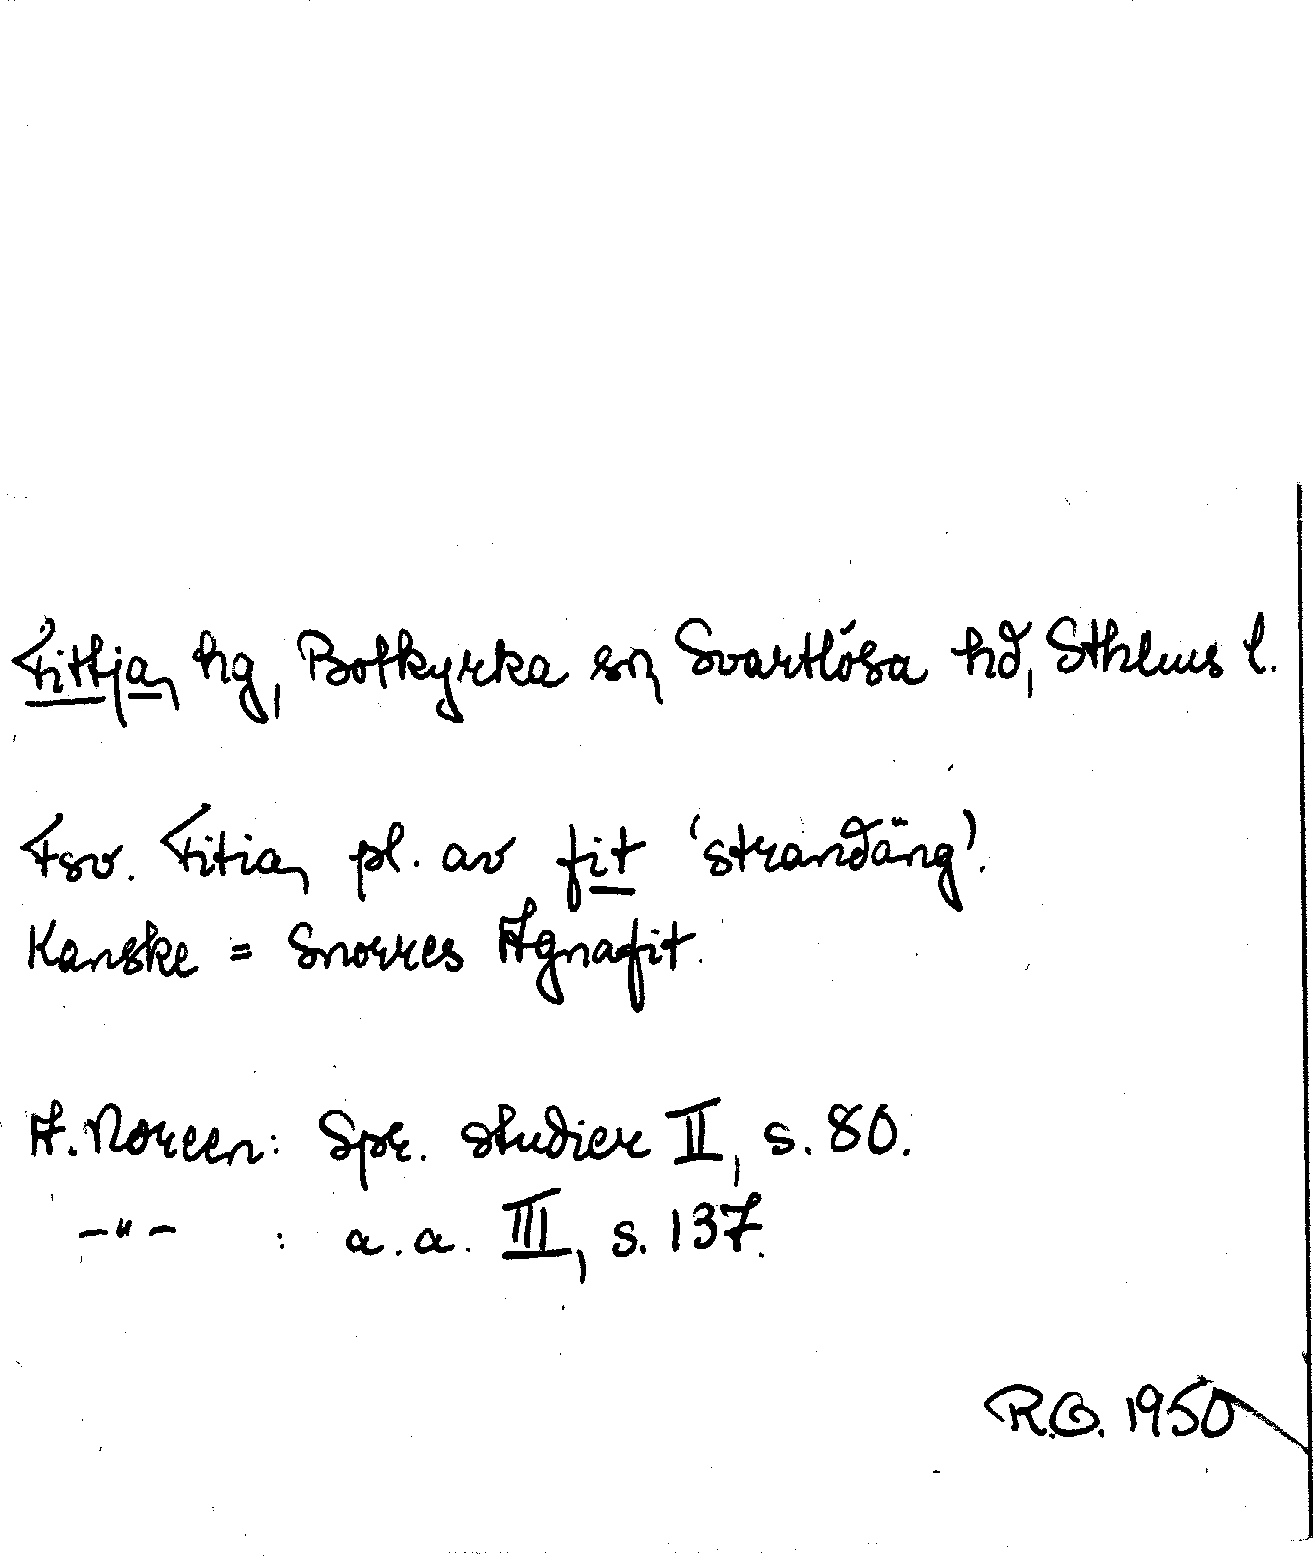 Fittja, hg, Botkyrka sn, Svartlösa hd, Sthlms l.
Fsv. Fitia, pl. av fit 'strandäng'.
Kanske = Snorres Agnafit.
A. Noreen: Spr. studier II, s. 80.
—"— : a. a. III, s. 137.
R.O. 1950